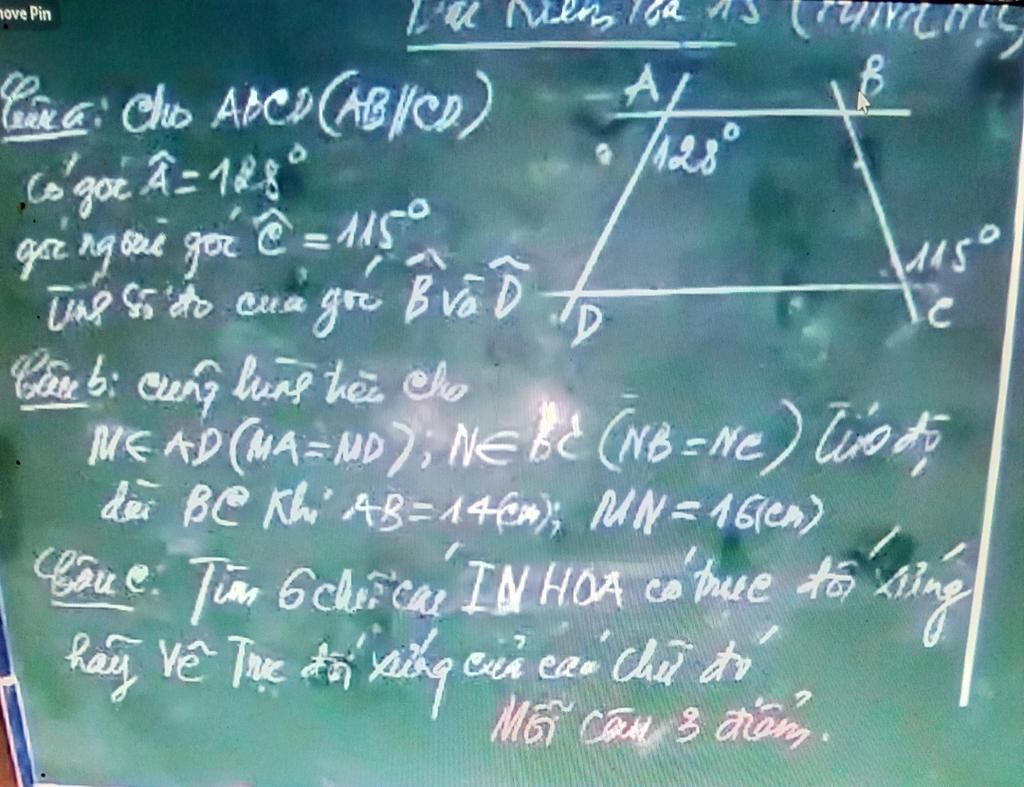 move Pin
Bài Kiểm Tra 15
Câu a: Cho ABCD (AB//CD)
Có góc Â = 128°
góc ngoài góc Ĉ = 115°
số đo của góc B̂ và D̂
A
B
128°
115°
D
C
Câu b: cũng hình trên cho
M∈ AD (MA = MD); N∈ BC (NB = NC) độ
dài BC Khi AB = 14(cm); MN = 16(cm)
Câu c: Tìm 6 chữ cái IN HOA có trục đối xứng
hãy Vẽ Trục đối xứng của các chữ đó
Mỗi câu 3 điểm.